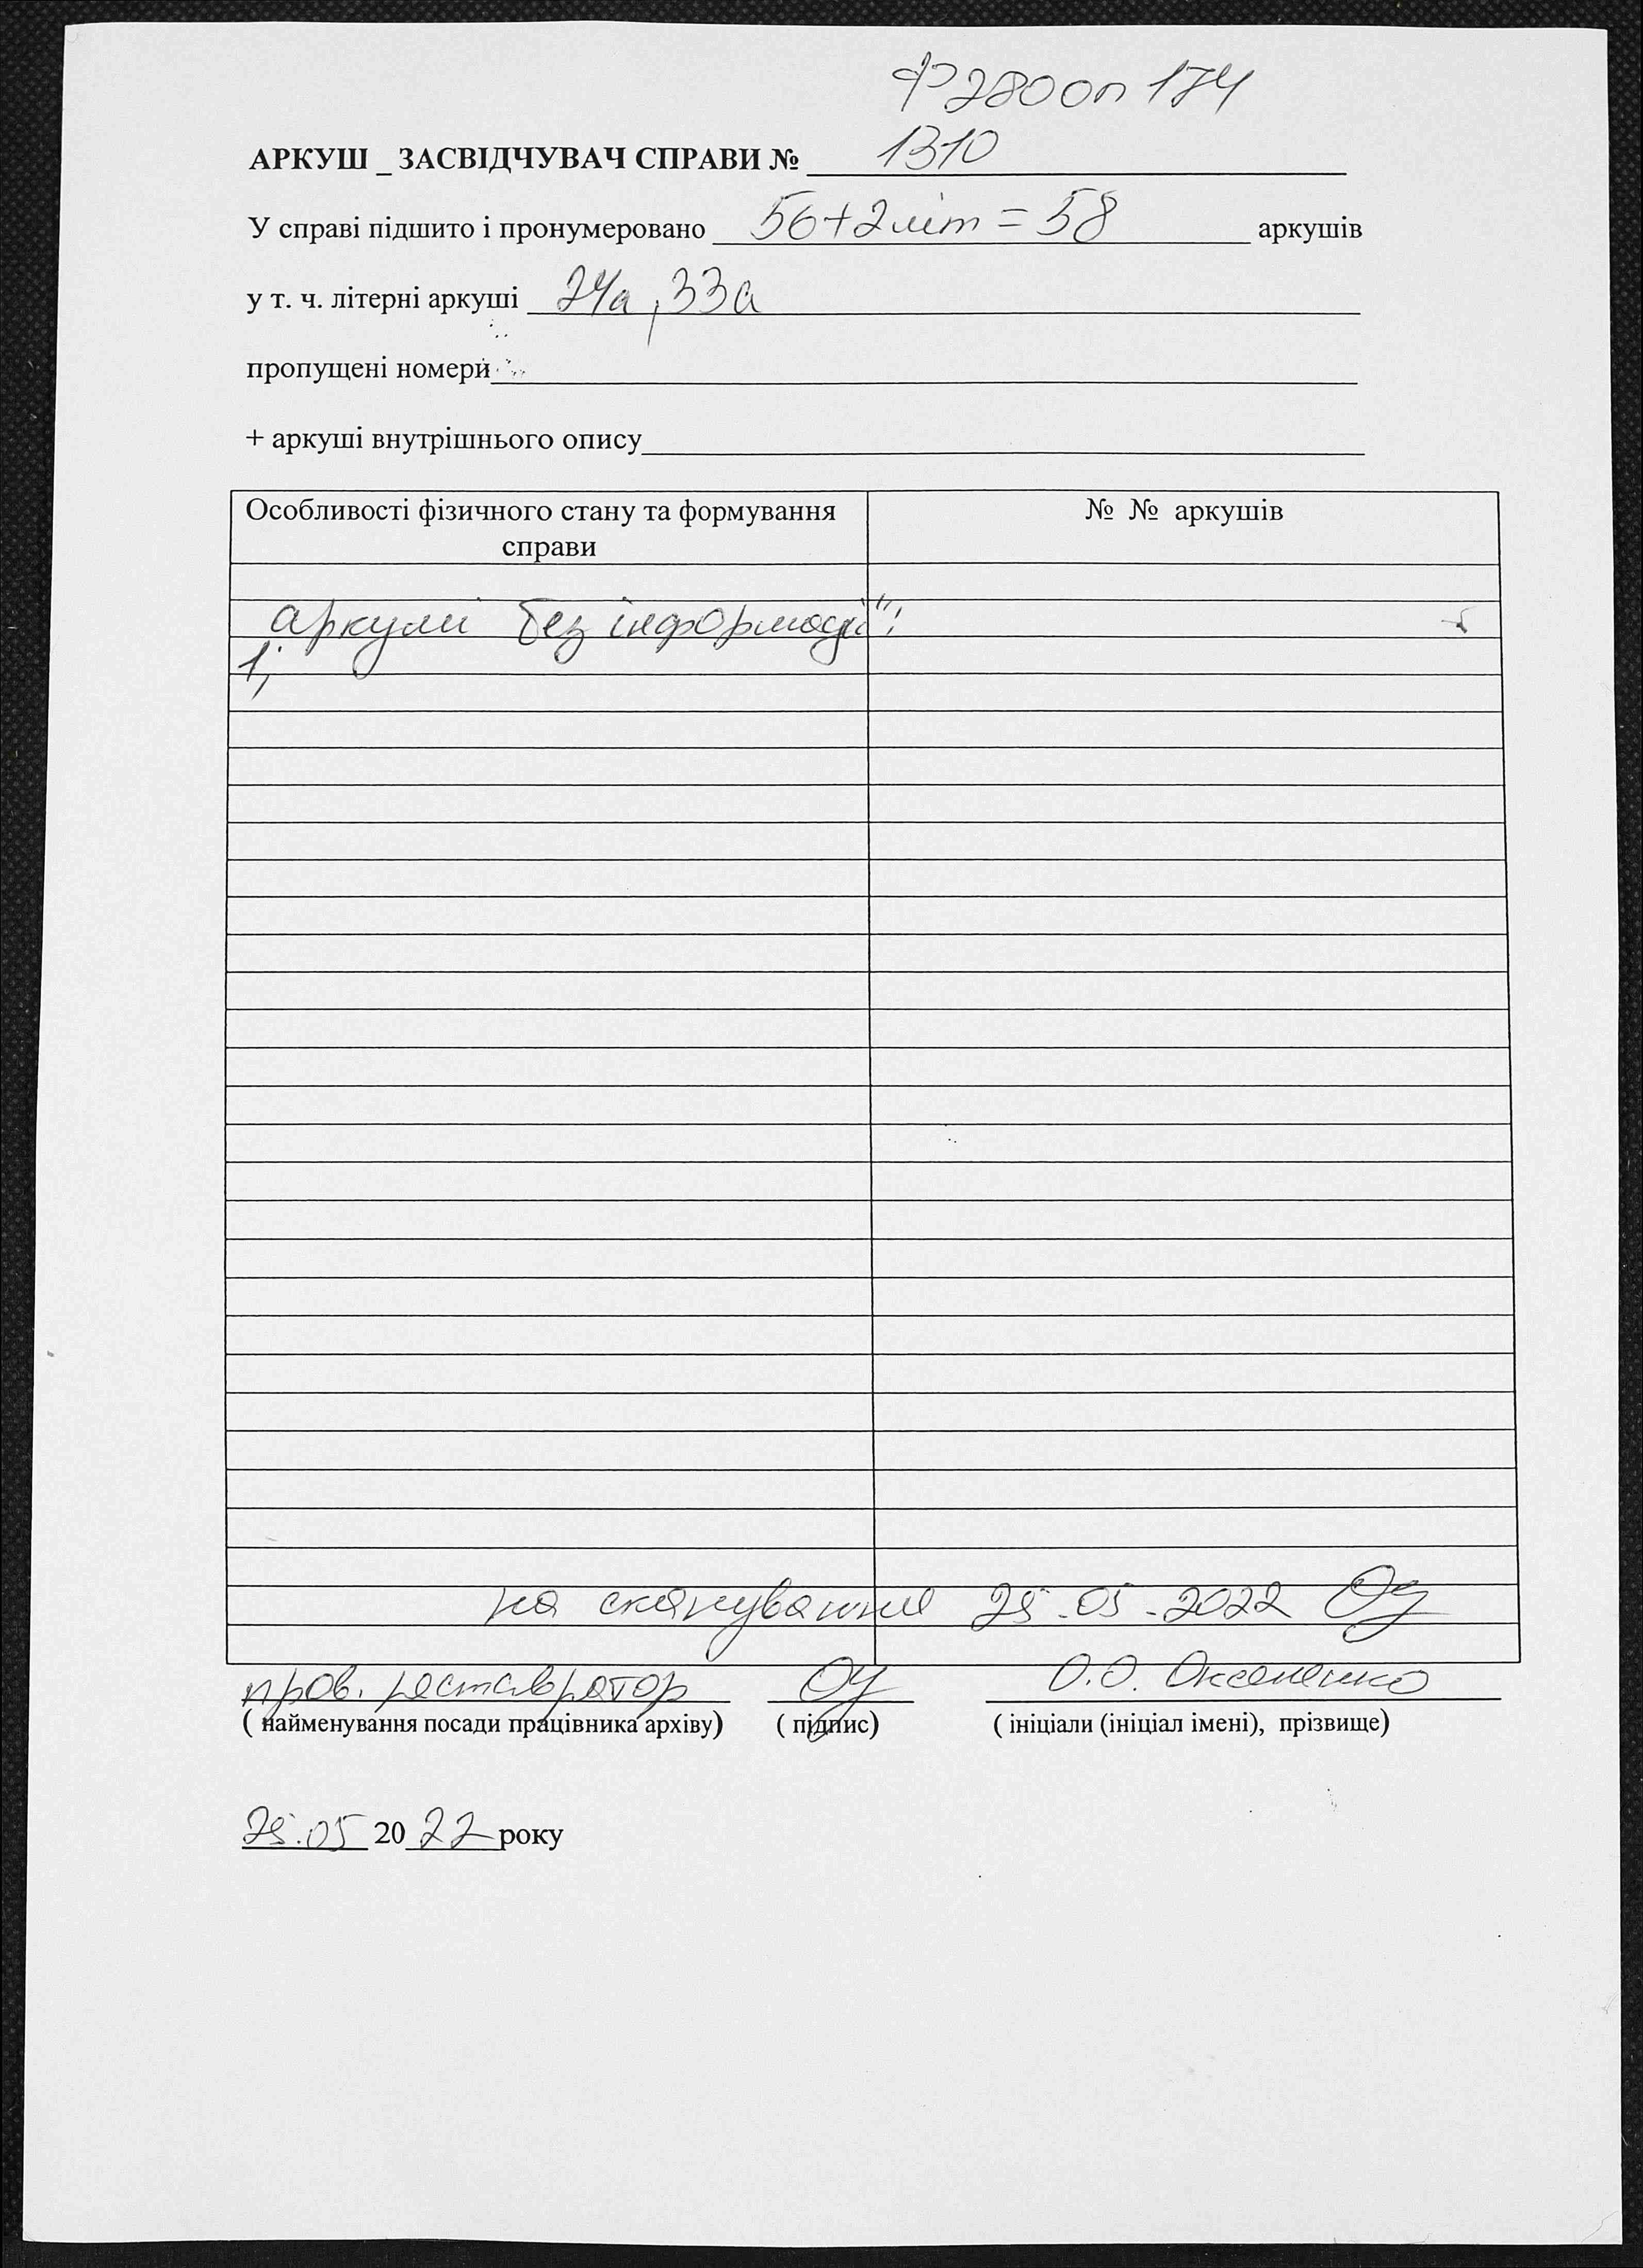 Ф 280 оп 174
АРКУШ _ ЗАСВІДЧУВАЧ СПРАВИ № 1310
У справі підшито і пронумеровано 56+2 літ = 58 аркушів
у т. ч. літерні аркуші 24а, 33а
пропущені номери
+ аркуші внутрішнього опису
Особливості фізичного стану та формування справи № № аркушів
аркуші без інформації:
1;
на сканування 25.05.2022
пров. реставратор О.О. Оксененко
( найменування посади працівника архіву) ( підпис) ( ініціали (ініціал імені), прізвище)
25.05 2022 року